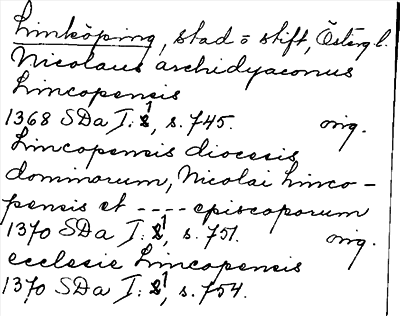 Linköping, stad o stift, Östergl.
Nicolaus archidyaconus
Lincopensis
1368 SDa I:1, s. 745. orig.
Lincopensis diocesis
dominorum, Nicolai Linco-
pensis et ---- episcoporum
1370 SDa I:1, s. 751. orig.
ecclesie Lincopensis
1370 SDa I:1, s. 754.